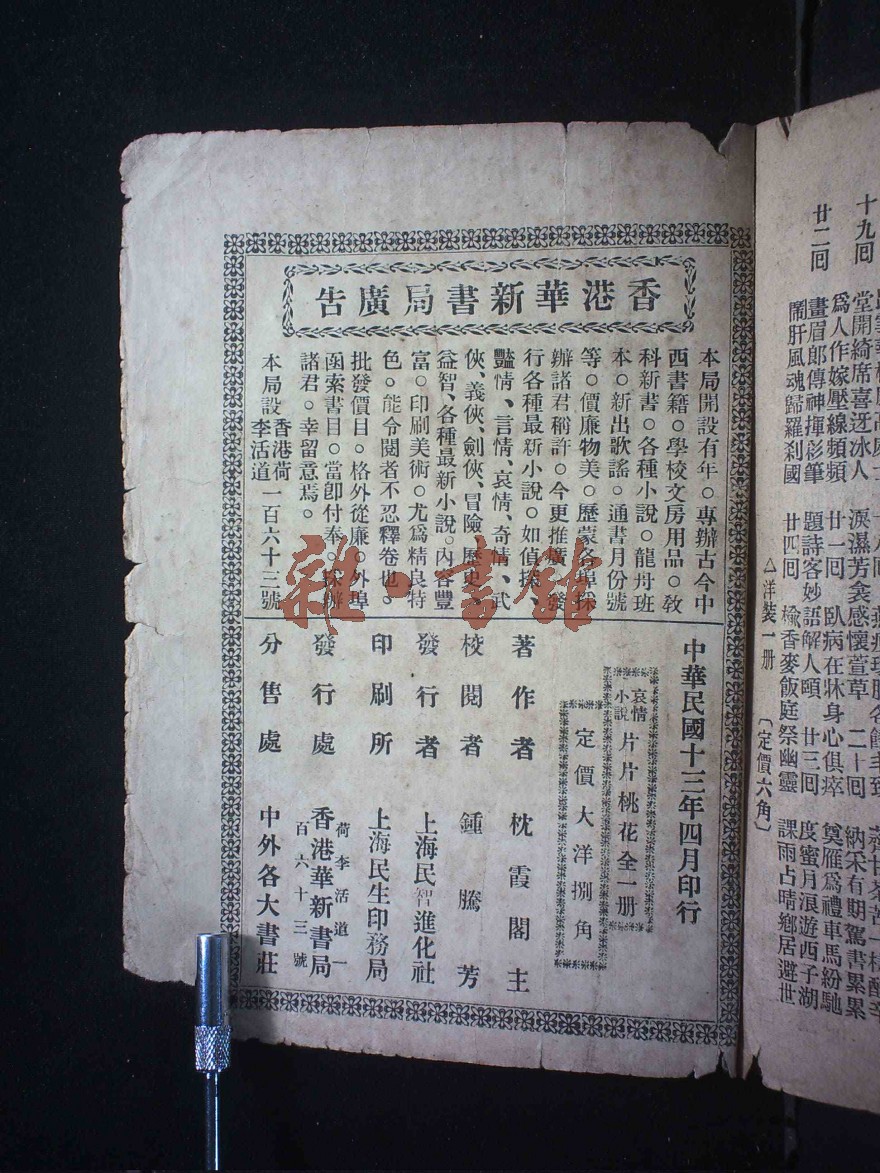 香港華新書局廣告
本局開設有年。專辦古今中
西書籍。學校文房用品。敎
科新書。各種小說。龍舟班
本。新出歌謠。通書月份號
等。價廉物美。歷蒙各埠採
辦諸君稱許。今更推廣。發
行各種最新小說。如偵探、
豔情、言情、哀情、奇情、武
俠、義俠、劍俠、冒險、歷史、
益智、各種最新小說。內容豐
富。印刷美術。尤爲精良特
色。能令閱者不忍釋卷也。
批發價目。格外從廉。外埠
函索書目。當卽付奉。採辦
諸君。幸留意焉。
本局設香港荷李活道一百六十三號
中華民國十三年四月印行
哀情小說 片片桃花全一册
定價大洋捌角
著作者 枕霞閣主
校閱者 鍾騰芳
發行者 上海民智進化社
印刷所 上海民生印務局
發行處 香港華新書局 荷李活道一百六十三號
分售處 中外各大書莊
十九回
堂開綺席喜迓冰人
淚濕芳衾感懷萱草 二十回
納采有期駕書累累
爲人作嫁壓線頻頻
廿一回 臥病在牀身心俱瘁
奠雁爲禮車馬紛馳
廿二回 畫眉郎傳神揮彩筆
題詩客妙語解人頤 廿三回 度蜜月浪遊西子湖
鬧肝風魂歸羅刹國
廿四回 檢香麥飯庭祭幽靈
課雨占晴鄉居避世
△洋裝一册 〔定價六角〕
雜·書館